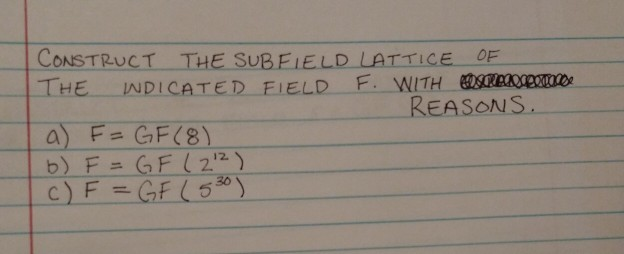 CONSTRUCT THE SUBFIELD LATTICE OF
THE INDICATED FIELD F. WITH
REASONS.
a) F = GF(8)
b) F = GF(2¹²)
c) F = GF(5³⁰)